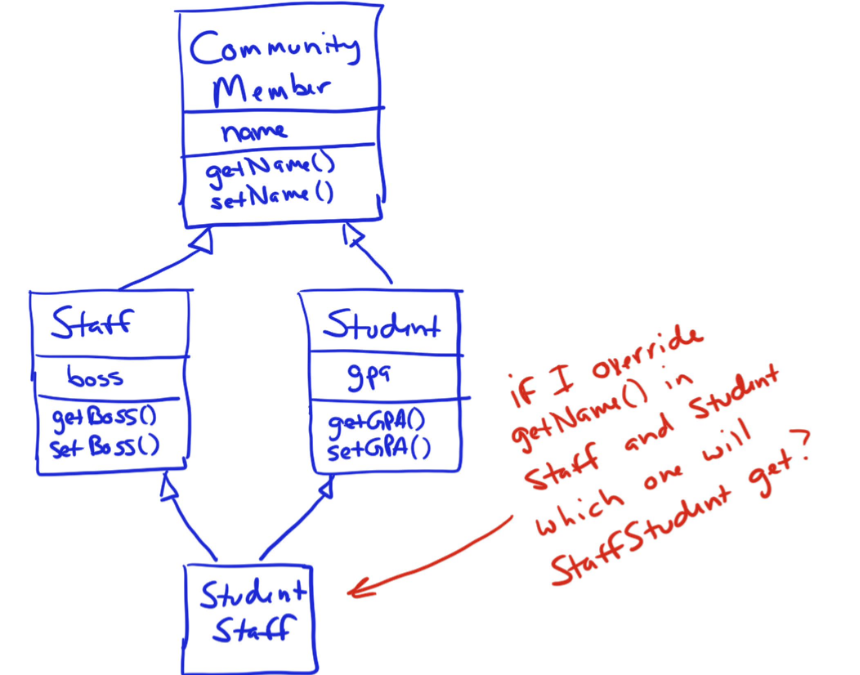 Community
Member
name
getName()
setName()
Staff
boss
getBoss()
setBoss()
Student
gpa
getGPA()
setGPA()
Student
Staff
if I override
getName() in
Staff and Student
which one will
StaffStudent get?